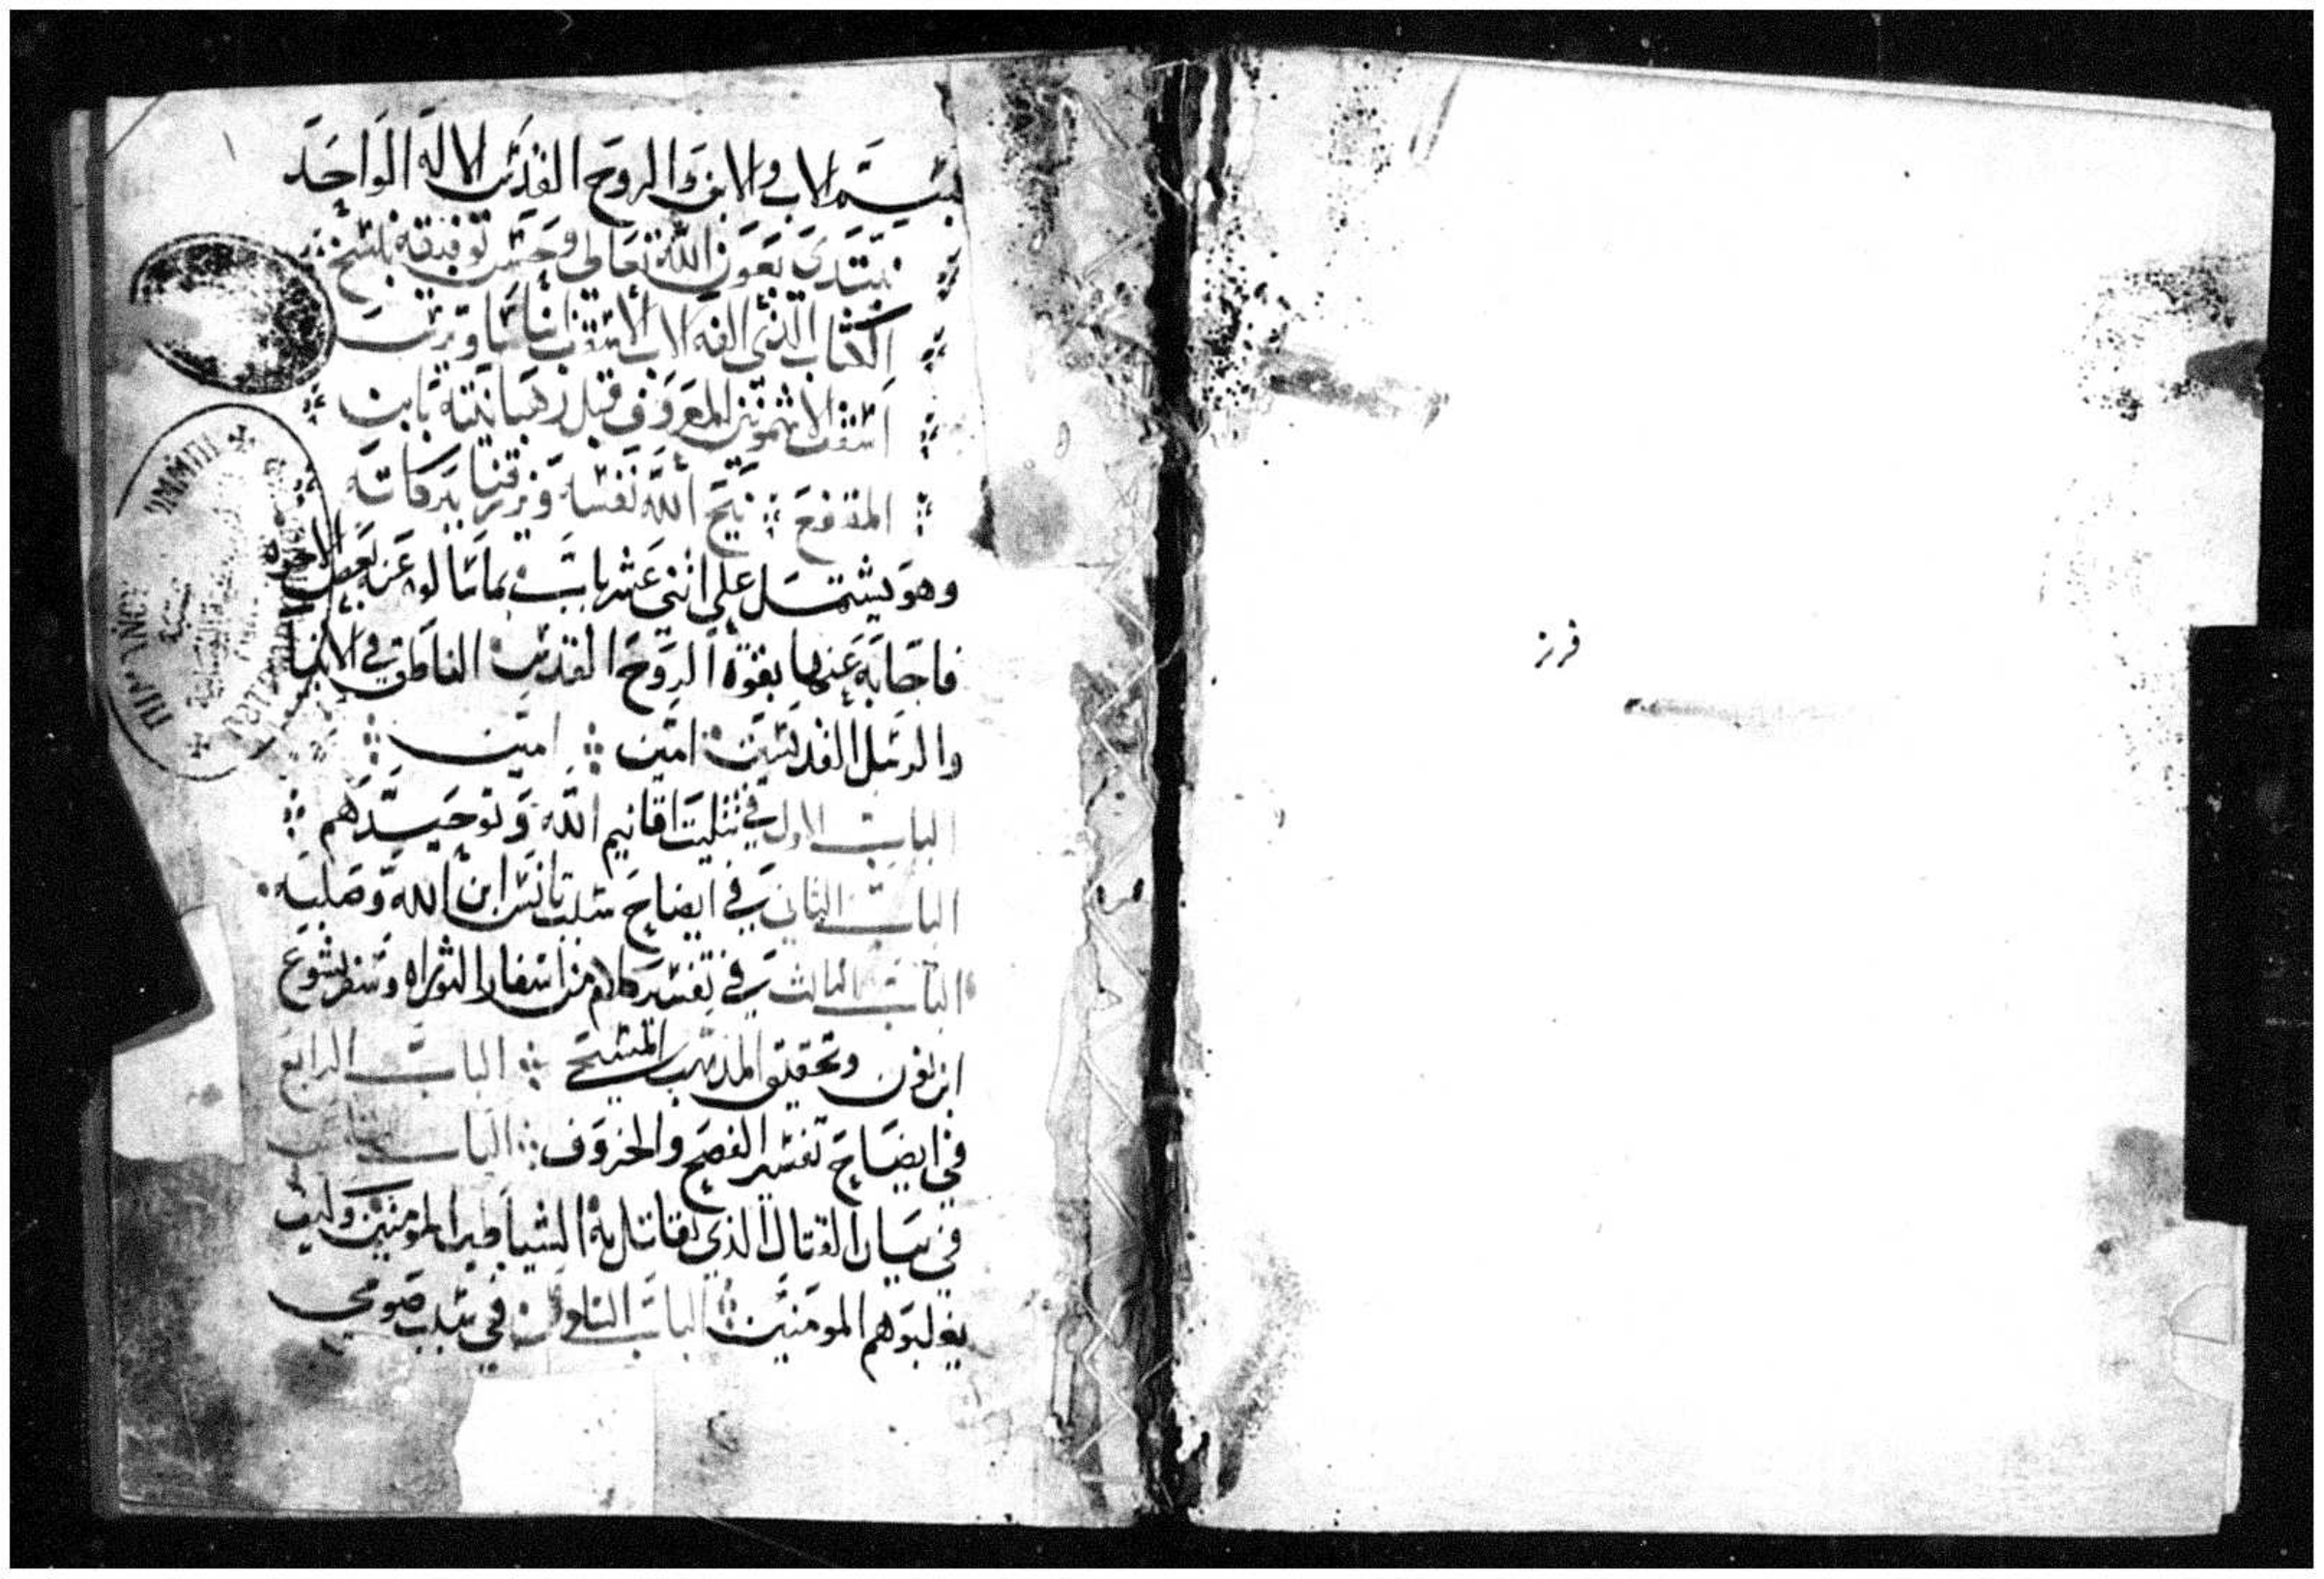 بسم الاب والابن والروح القدس الاله الواحد
نبتدي بعون الله تعالى وحسن توفيقه بنسخ
الكتاب الذي الفه الاب الاسقف انبا ساويرس
اسقف الاشمونين المعروف قبل رهبانيته بابن
المقفع نيح الله نفسه ورزقنا بركاته
وهو يشتمل على اثني عشر باب مما سالوه عنه بعض الاخوه
فاجابه عنها بقوة الروح القدس الناطق في الانبيا
والرسل القديسين امين امين
الباب الاول في تثليت اقانيم الله وتوحيدهم
الباب الثاني في ايضاح سبب تانس ابن الله وصلبه
الباب الثالث في تفسير كلام من اسفار التوراه وسفر يشوع
ابن نون وتحقيق المذهب المسيحي الباب الرابع
في ايضاح تفسير الفصح والخروف الباب
في بيان القتال الذي تقاتل به الشياطين المومنين وكيف
يغلبوهم المومنين الباب السادس في سبب صومي
فرز